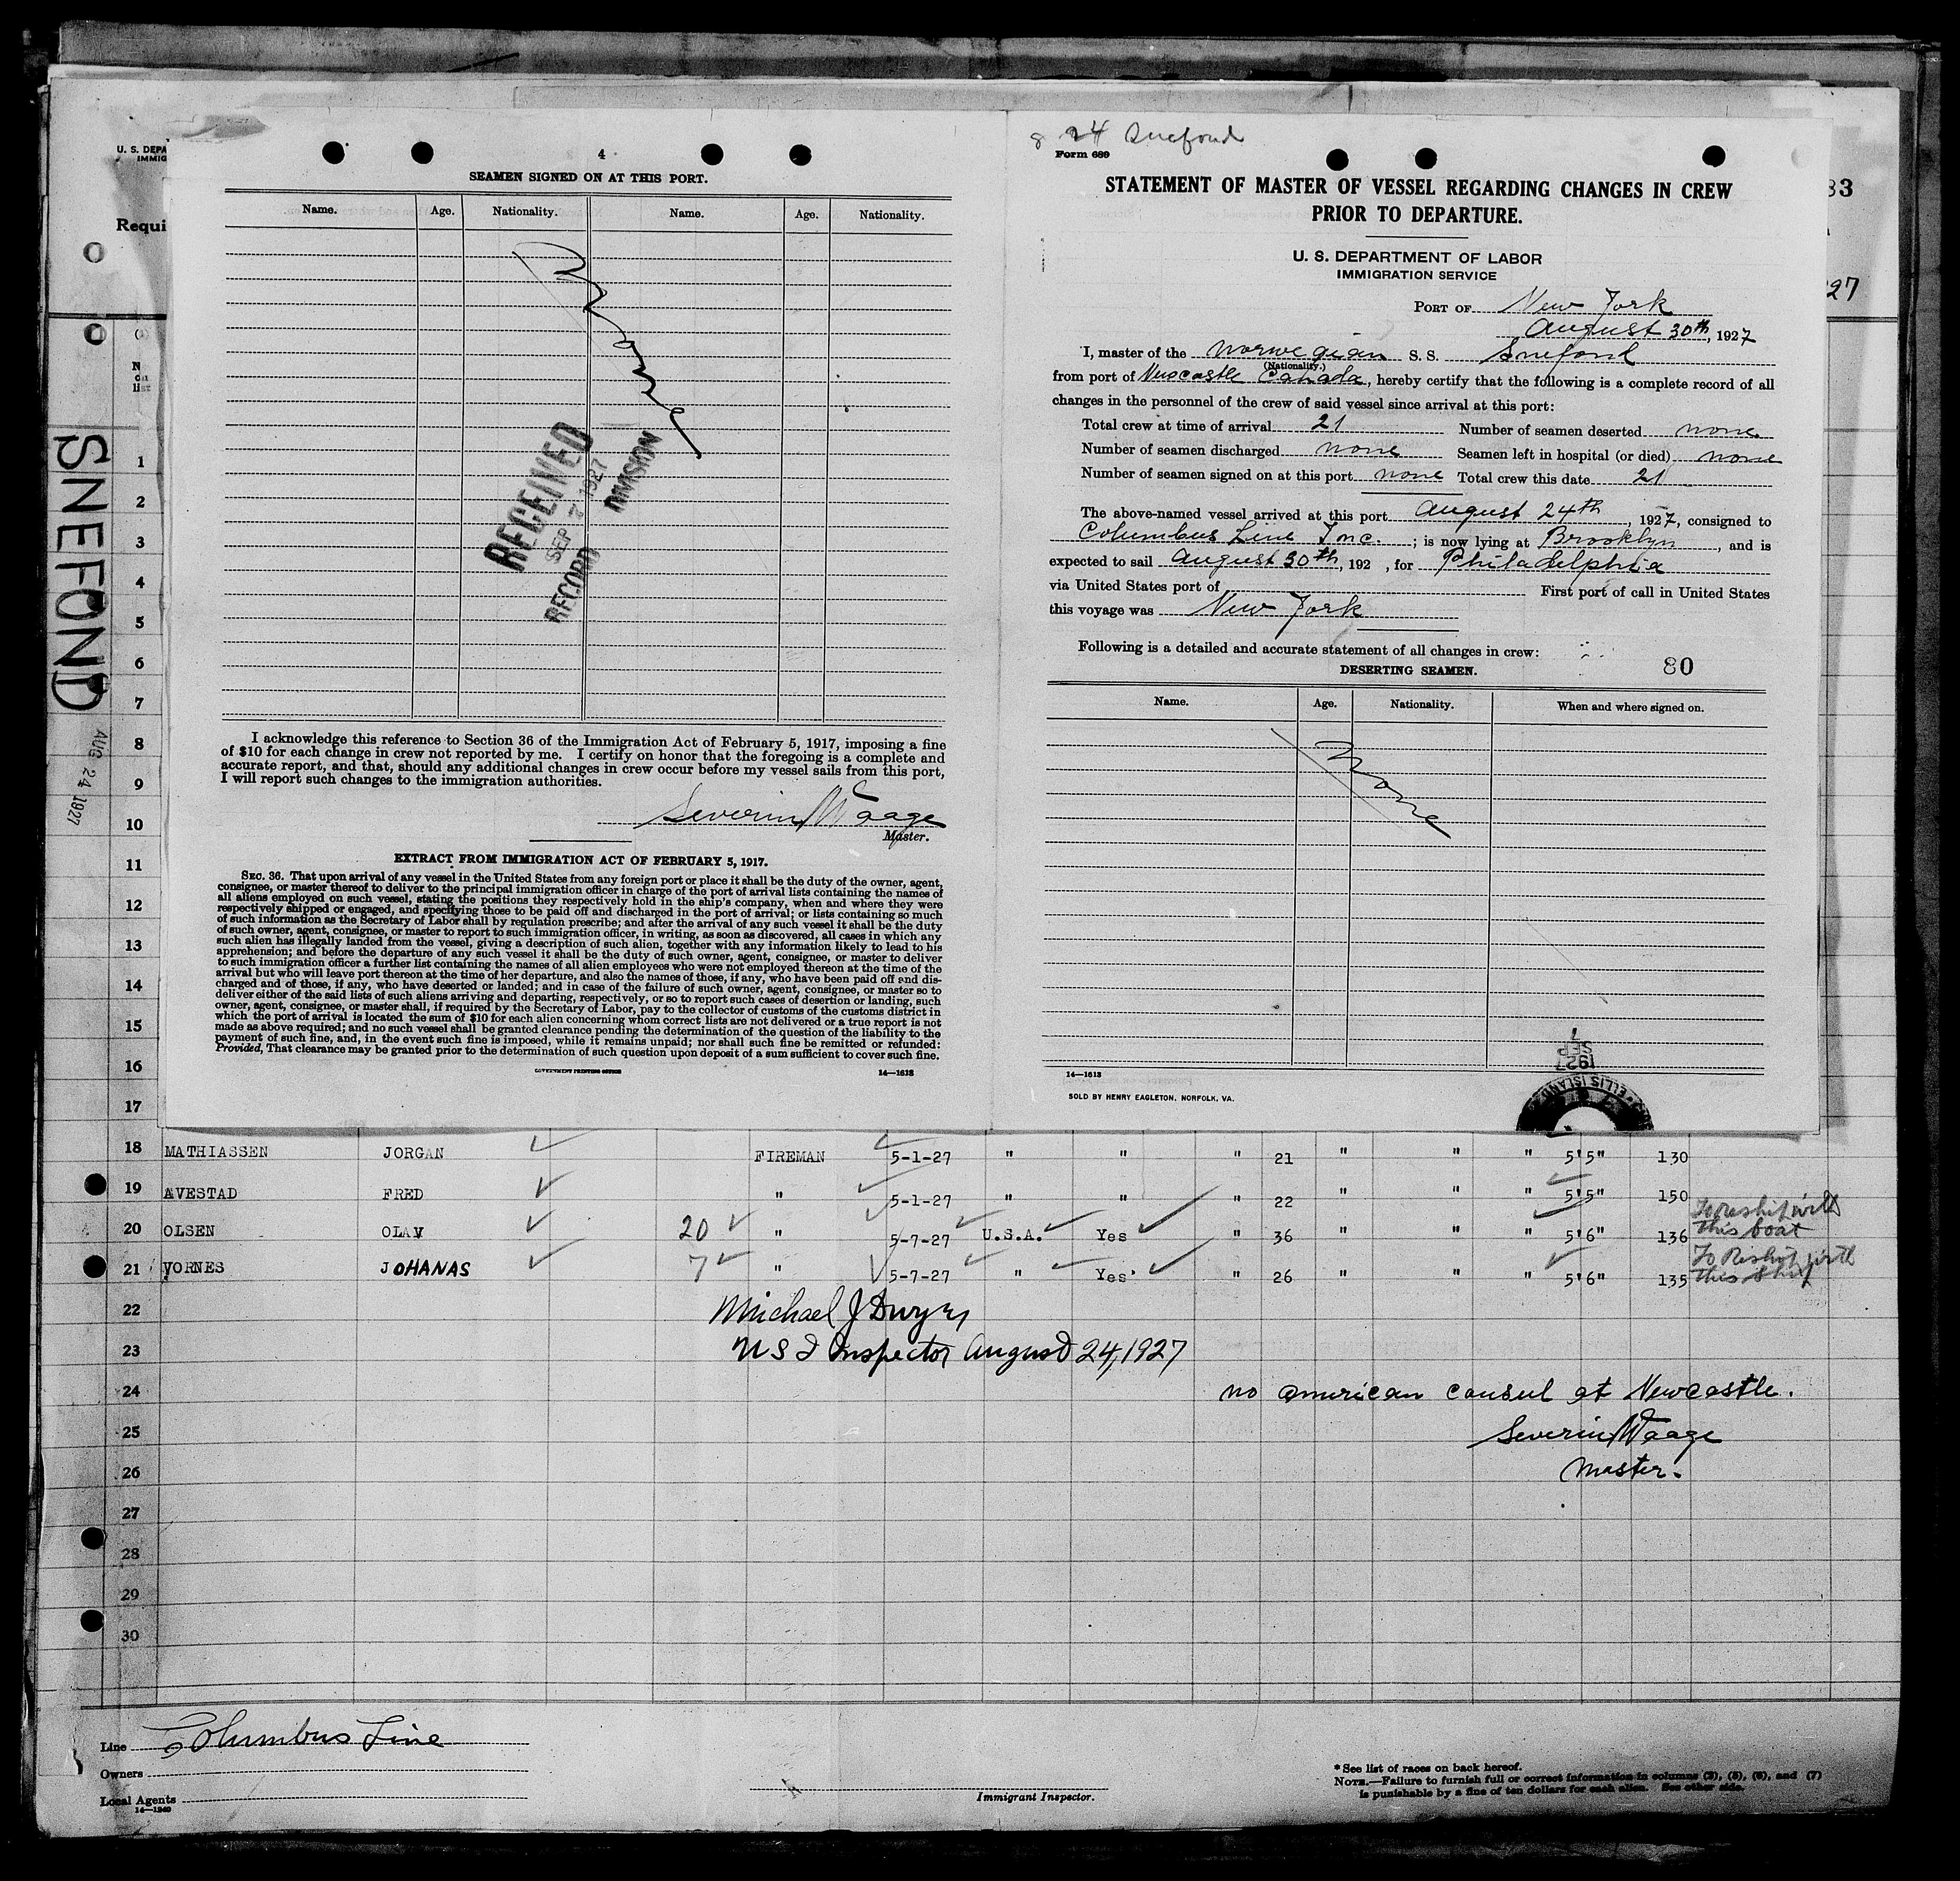 U. S. DEPA
IMMIG
Requi
N
on
list
SNEFOND
AUG 24 1927
4
SEAMEN SIGNED ON AT THIS PORT.
Name. Age. Nationality. Name. Age. Nationality.
None
RECEIVED
SEP 7 1927
RECORD DIVISION
I acknowledge this reference to Section 36 of the Immigration Act of February 5, 1917, imposing a fine
of $10 for each change in crew not reported by me. I certify on honor that the foregoing is a complete and
accurate report, and that, should any additional changes in crew occur before my vessel sails from this port,
I will report such changes to the immigration authorities.
Severin Waage
Master.
EXTRACT FROM IMMIGRATION ACT OF FEBRUARY 5, 1917.
SEC. 36. That upon arrival of any vessel in the United States from any foreign port or place it shall be the duty of the owner, agent,
consignee, or master thereof to deliver to the principal immigration officer in charge of the port of arrival lists containing the names of
all aliens employed on such vessel, stating the positions they respectively hold in the ship's company, when and where they were
respectively shipped or engaged, and specifying those to be paid off and discharged in the port of arrival; or lists containing so much
of such information as the Secretary of Labor shall by regulation prescribe; and after the arrival of any such vessel it shall be the duty
of such owner, agent, consignee, or master to report to such immigration officer, in writing, as soon as discovered, all cases in which any
such alien has illegally landed from the vessel, giving a description of such alien, together with any information likely to lead to his
apprehension; and before the departure of any such vessel it shall be the duty of such owner, agent, consignee, or master to deliver
to such immigration officer a further list containing the names of all alien employees who were not employed thereon at the time of the
arrival but who will leave port thereon at the time of her departure, and also the names of those, if any, who have been paid off and dis-
charged and of those, if any, who have deserted or landed; and in case of the failure of such owner, agent, consignee, or master so to
deliver either of the said lists of such aliens arriving and departing, respectively, or so to report such cases of desertion or landing, such
owner, agent, consignee, or master shall, if required by the Secretary of Labor, pay to the collector of customs of the customs district in
which the port of arrival is located the sum of $10 for each alien concerning whom correct lists are not delivered or a true report is not
made as above required; and no such vessel shall be granted clearance pending the determination of the question of the liability to the
payment of such fine, and, in the event such fine is imposed, while it remains unpaid; nor shall such fine be remitted or refunded:
Provided, That clearance may be granted prior to the determination of such question upon deposit of a sum sufficient to cover such fine.
GOVERNMENT PRINTING OFFICE 14—1613
8 24 Snefond
Form 689
STATEMENT OF MASTER OF VESSEL REGARDING CHANGES IN CREW
PRIOR TO DEPARTURE.
U. S. DEPARTMENT OF LABOR
IMMIGRATION SERVICE
PORT OF New York
August 30th, 1927
I, master of the Norwegian S. S. Snefond
(Nationality.)
from port of Newcastle Canada, hereby certify that the following is a complete record of all
changes in the personnel of the crew of said vessel since arrival at this port:
Total crew at time of arrival 21 Number of seamen deserted none
Number of seamen discharged none Seamen left in hospital (or died) none
Number of seamen signed on at this port none Total crew this date 21
The above-named vessel arrived at this port August 24th, 1927, consigned to
Columbus Line Inc. ; is now lying at Brooklyn, and is
expected to sail August 30th, 192 , for Philadelphia
via United States port of First port of call in United States
this voyage was New York
Following is a detailed and accurate statement of all changes in crew:
80
DESERTING SEAMEN.
Name. Age. Nationality. When and where signed on.
None
14—1613
SOLD BY HENRY EAGLETON, NORFOLK, VA.
1927
SEP
7
ELLIS ISLAND
33
27
1
2
3
4
5
6
7
8
9
10
11
12
13
14
15
16
17
18 MATHIASSEN JORGAN FIREMAN 5-1-27 " " " 21 " " " 5'5" 130
19 AVESTAD FRED " 5-1-27 " " " 22 " " " 5'5" 150
20 OLSEN OLAV 20 " 5-7-27 U.S.A. Yes " 36 " " " 5'6" 136 To Reship with this boat
21 VORNES JOHANAS 7 " 5-7-27 " Yes " 26 " " " 5'6" 135 To Reship with this ship
22 Michael J Dwyer
23 U S I Inspector August 24, 1927
24 no american consul at Newcastle.
25 Severin Waage
26 Master.
27
28
29
30
Line Columbus Line
Owners
Local Agents
14—1240
Immigrant Inspector.
* See list of races on back hereof.
NOTE.—Failure to furnish full or correct information in columns (2), (5), (6), and (7)
is punishable by a fine of ten dollars for each alien. See other side.